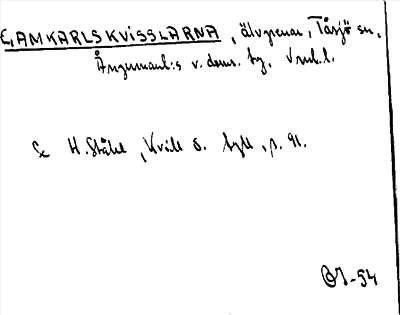 GAMKARLSKVISSLARNA, älvgrenar, Tåsjö sn,
Ångermanl:s v. doms. hg, Vnrl. l.
Se H. Ståhl, Kvill o. tyll, p. 91.
OJ-54